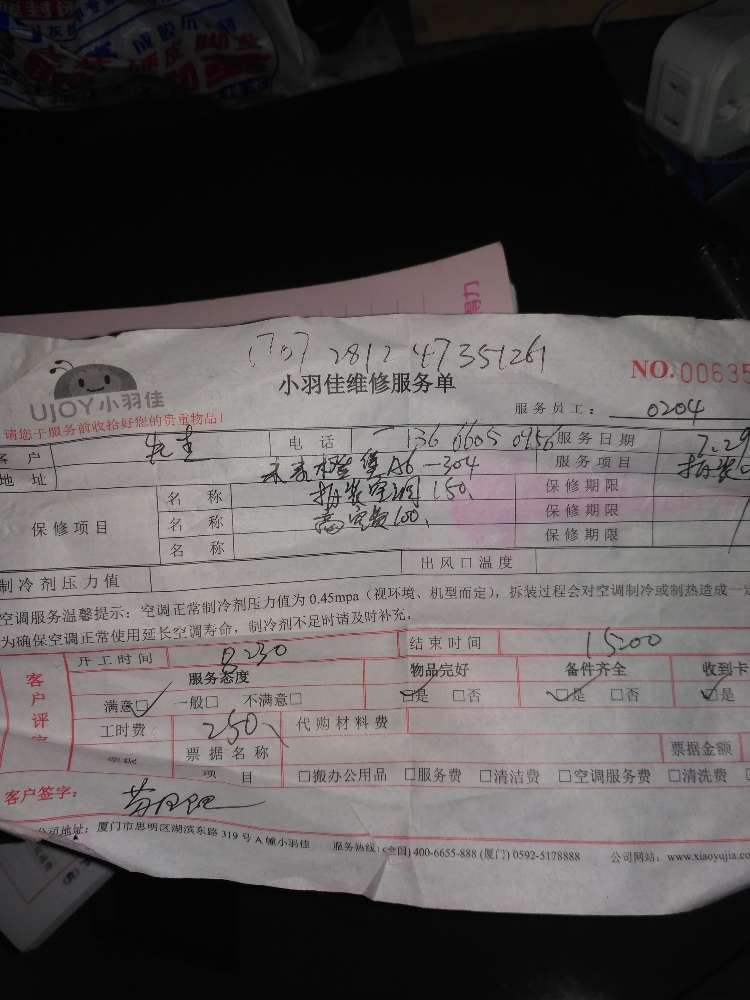 2812 47351261
NO.00635
UJOY小羽佳
小羽佳维修服务单
请您于服务前收拾好您的贵重物品!
服务员工： 0204
客户 电话 136 6605 0456 服务日期 7.29
地址 A6-304 服务项目 拆装
保修项目 名称 拆装空调150、 保修期限
名称 高空费100、 保修期限
名称 保修期限
制冷剂压力值 出风口温度
空调服务温馨提示：空调正常制冷剂压力值为 0.45mpa（视环境、机型而定），拆装过程会对空调制冷或制热造成一定
为确保空调正常使用延长空调寿命，制冷剂不足时请及时补充。
客户评 开工时间 结束时间 15200
服务态度 物品完好 备件齐全 收到卡
满意□ 一般□ 不满意□ □是 □否 □是 □否 □是
工时费 250、 代购材料费
票据名称 票据金额
项目 □搬办公用品 □服务费 □清洁费 □空调服务费 □清洗费
客户签字：
公司地址：厦门市思明区湖滨东路 319 号 A 幢小羽佳 服务热线：(全国) 400-6655-888 (厦门) 0592-5178888 公司网站：www.xiaoyujia.co